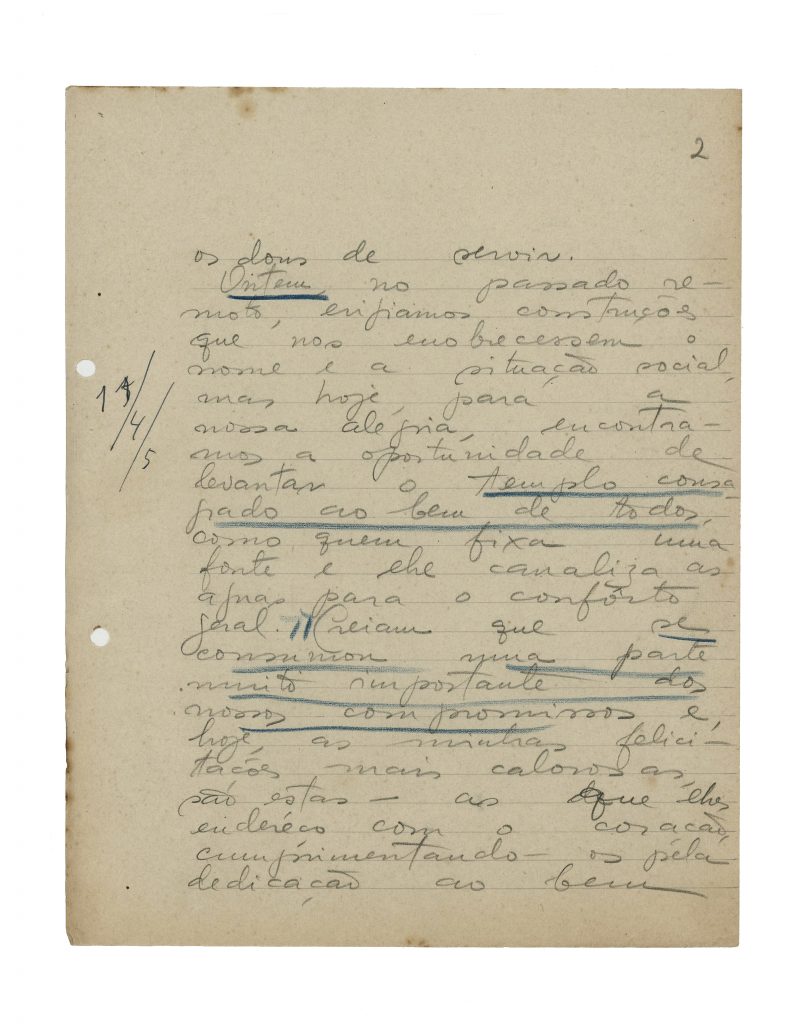 2
os dons de servir.
Ontem, no passado re-
moto, erigiamos construções
que nos enobrecessem o
nome e a situação social,
mas hoje, para a
nossa alegria, encontra-
mos a oportunidade de
levantar o templo consa-
grado ao bem de todos,
como quem fixa uma
fonte e lhe canaliza as
aguas para o confôrto
geral. Creiam que se
consumou uma parte
muito importante dos
nossos compromissos e,
hoje, as minhas felici-
tações mais calorosas,
são estas — as que lhes
enderéço com o coração,
cumprimentando-os pela
dedicação ao bem
14/4/5